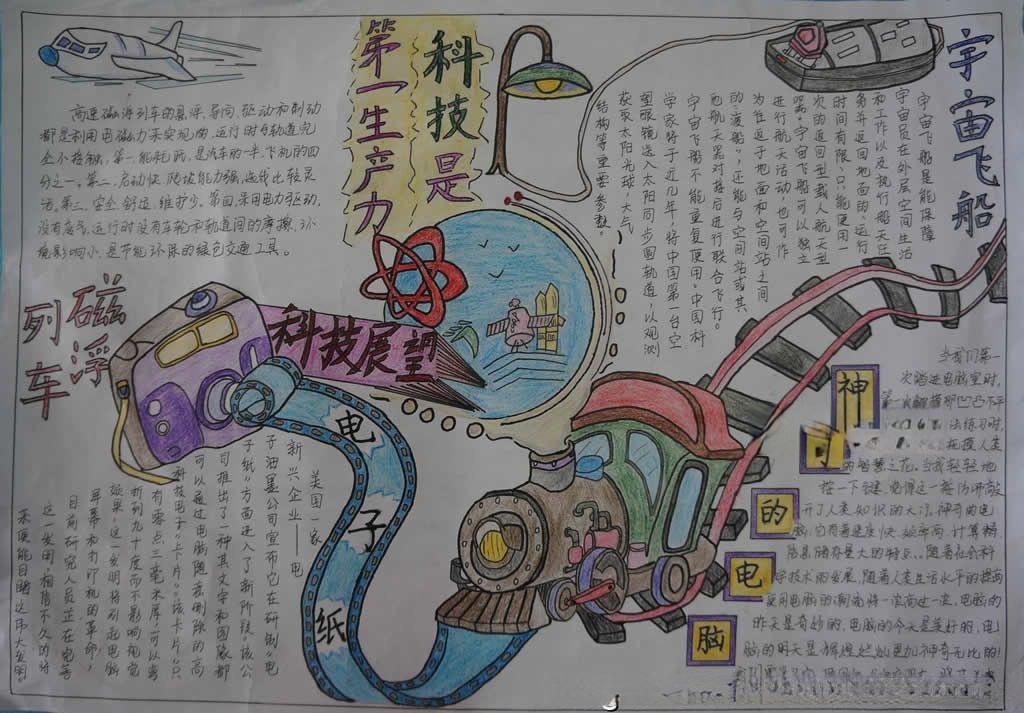 科技是
第一生产力
高速磁浮列车的悬浮、导向、驱动和制动
都是利用电磁力来实现的，运行时与轨道完
全不接触。第一，能耗低，是汽车的一半，飞机的四
分之一。第二，启动快，爬坡能力强，选线比较灵
活。第三，安全舒适，维护少。第四，采用电力驱动，
没有废气，运行时没有车轮和轨道间的摩擦，环
境影响小，是节能环保的绿色交通工具。
磁浮
列车
科技展望
宇宙飞船
宇宙飞船是能保障
宇宙员在外层空间生活
和工作以及执行航天任
务并返回地面的、运行
时间有限、只能使用一
次的返回型载人航天型
器。宇宙飞船可以独立
进行航天活动，也可作
为往返于地面和空间站之间
的“渡船”，还能与空间站或其
他航天器对接后进行联合飞行。
宇宙飞船不能重复使用。中国科
学家将于近几年将中国第一台空
望眼镜送入太阳同步圆轨道，以观测
获取太阳光球、大气
结构等重要参数。
电子纸
美国一家
新兴企业——电
子油墨公司宣布它在研制“电
子纸”方面进入了新阶段。该公
司推出了一种其文字和图象都
可以通过电脑随意删除的高
科技电子“卡片”。该卡片只
有零点三毫米厚，可以卷
折到九十度而不影响视觉
效果。这一发明将引起电脑
屏幕和打印机的革命，
目前研究人员正在完善
这一发明，相信不久的将
来便能目睹这伟大发明。
神
的
电
脑
当我们第一
次踏进电脑室时，
法练习时，
的智慧之花。当我轻轻地
按一下键，
开了人类知识的大门。神奇的电
脑，它有着速度快、效率高、计算精
随着社会科
学技术的发展，随着人类生活水平的提高
电脑的
昨天是奇妙的，电脑的今天是美好的，电
脑的明天是辉煌灿烂更加神奇无比的！